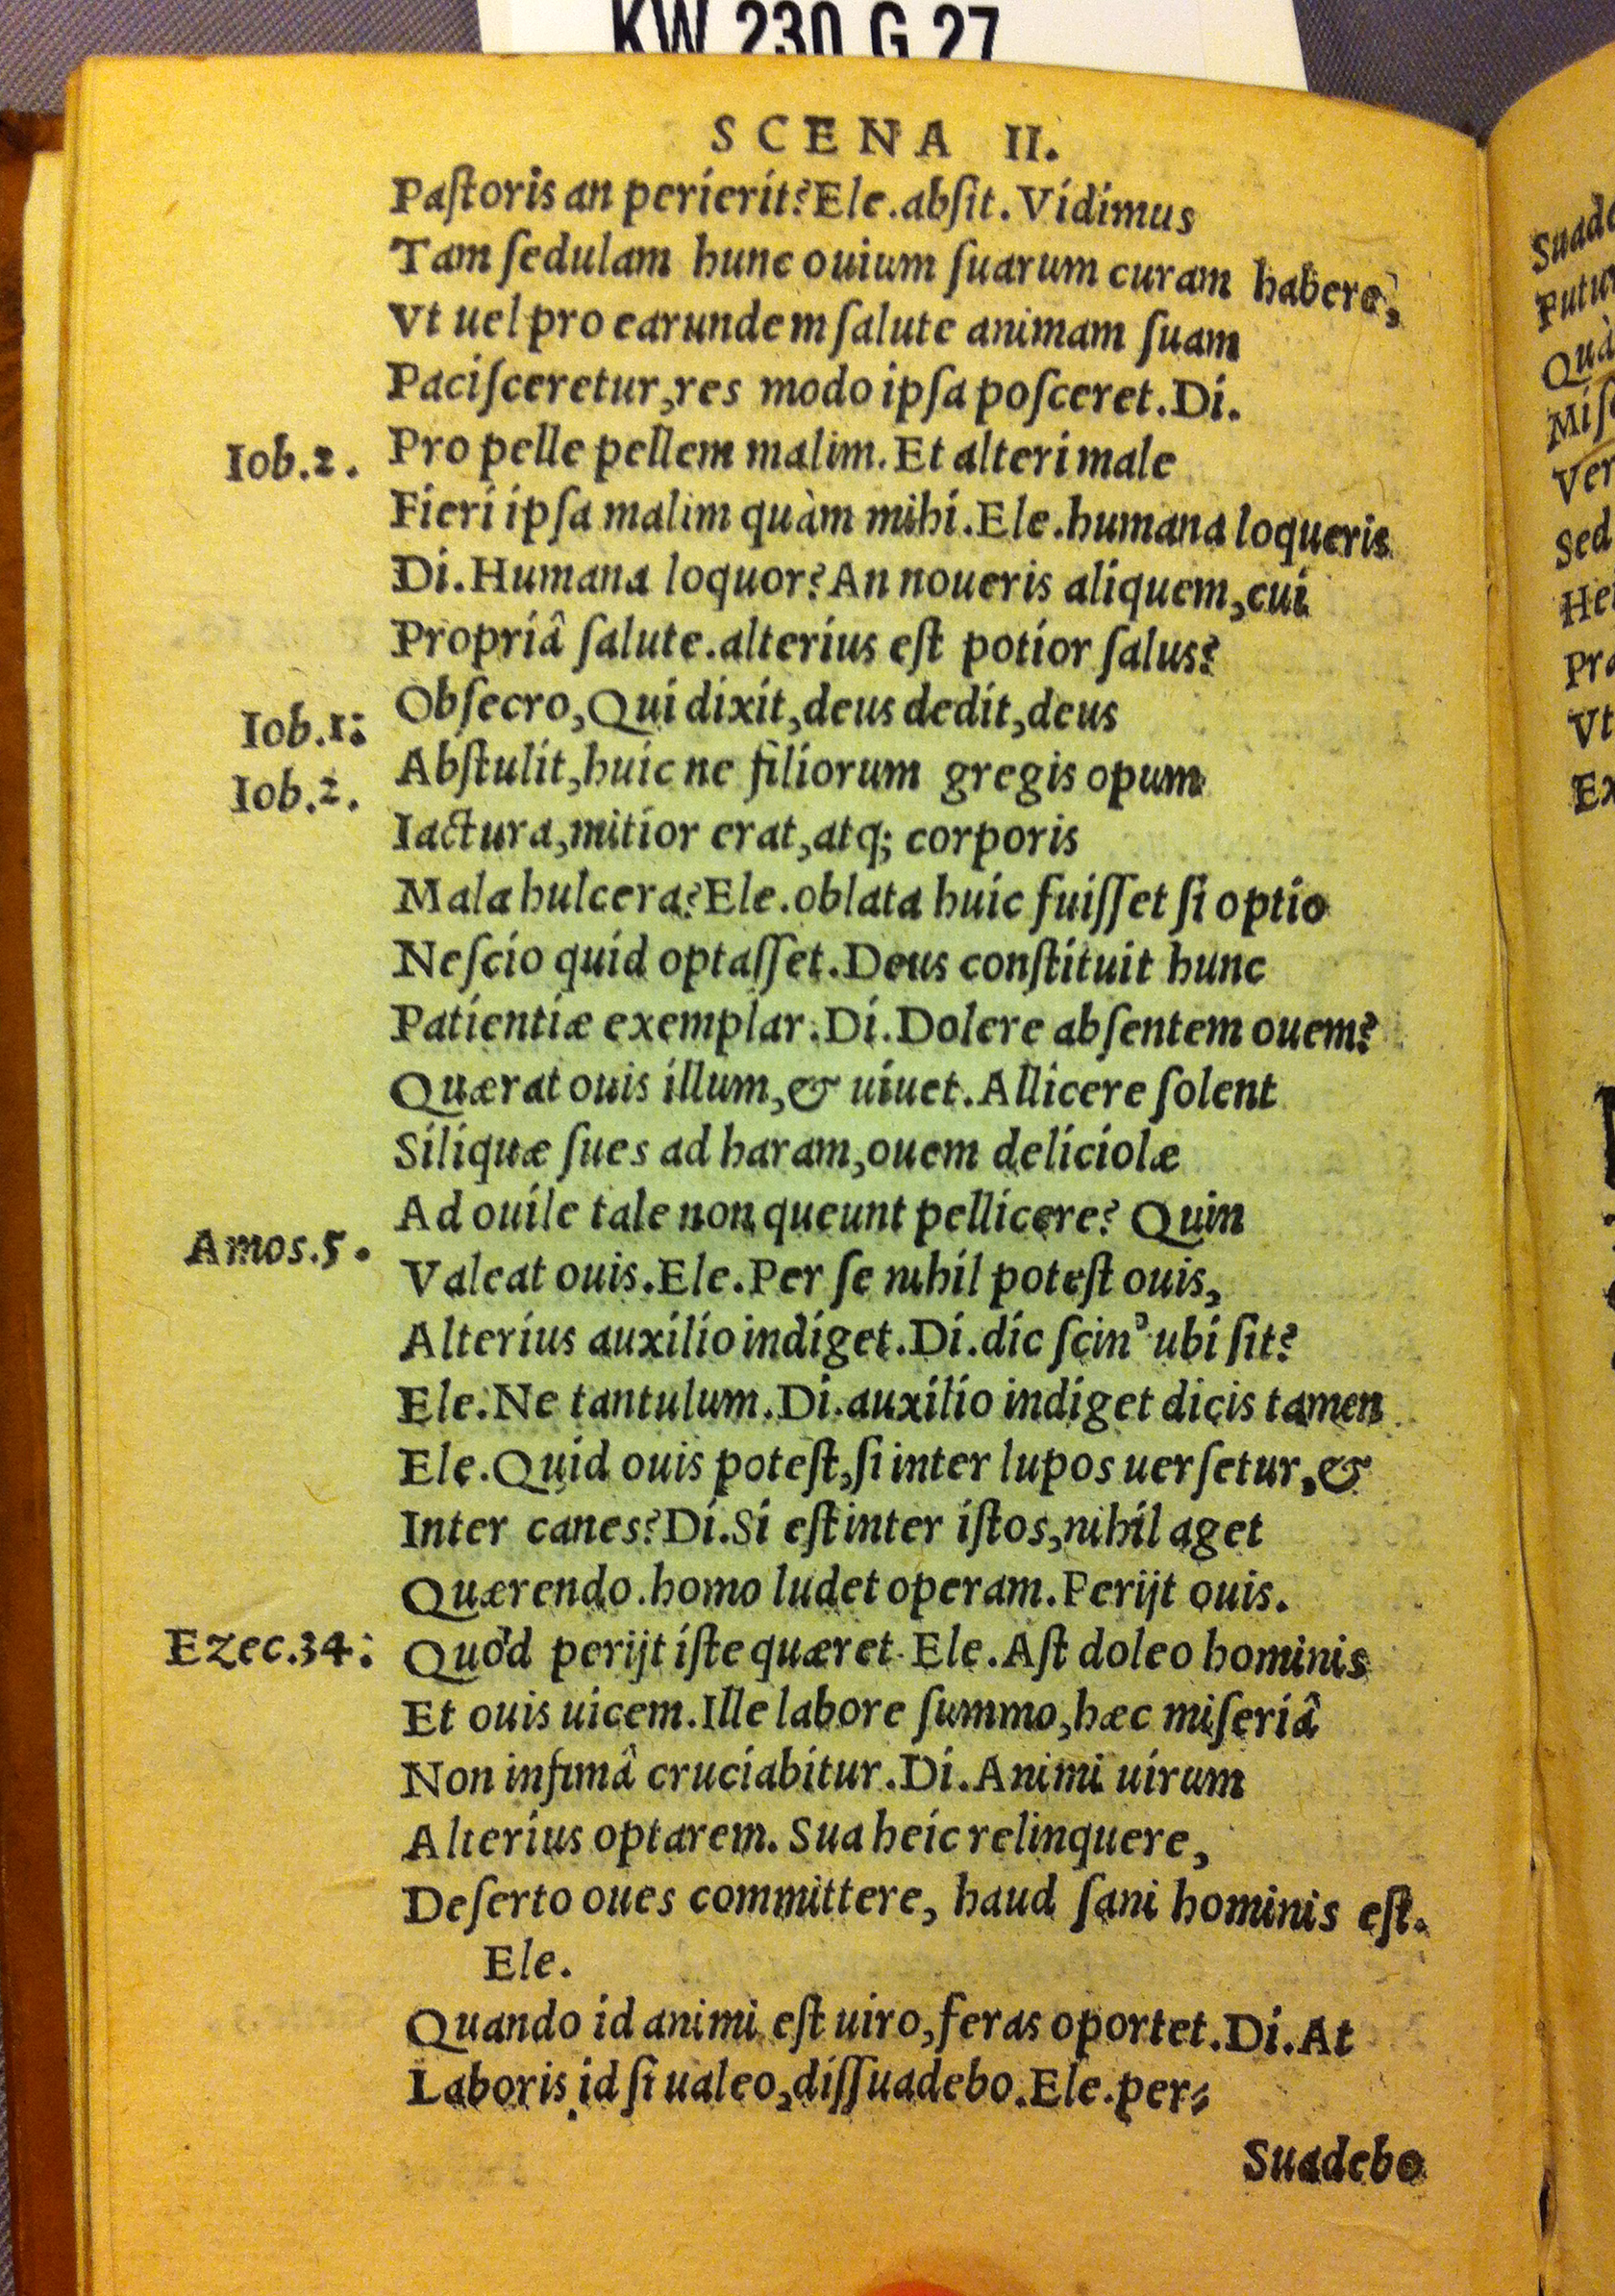 KW 230 G 27
SCENA II.
Paſtoris an perierit? Ele. abſit. Vidimus
Tam ſedulam hunc ouium ſuarum curam habere,
Vt uel pro earundem ſalute animam ſuam
Paciſceretur, res modo ipſa poſceret. Di.
Iob. 2. Pro pelle pellem malim. Et alteri male
Fieri ipſa malim quàm mihi. Ele. humana loqueris
Di. Humana loquor? An noueris aliquem, cui
Propriâ ſalute. alterius eſt potior ſalus?
Iob. 1: Obſecro, Qui dixit, deus dedit, deus
Iob. 2. Abſtulit, huic ne filiorum gregis opum
Iactura, mitior erat, atq; corporis
Mala hulcera? Ele. oblata huic fuiſſet ſi optio
Neſcio quid optaſſet. Deus conſtituit hunc
Patientiæ exemplar. Di. Dolere abſentem ouem?
Quærat ouis illum, & uiuet. Allicere ſolent
Siliquæ ſues ad haram, ouem deliciolæ
Ad ouile tale non queunt pellicere? Quin
Amos. 5. Valeat ouis. Ele. Per ſe nihil poteſt ouis,
Alterius auxilio indiget. Di. dic ſcin' ubi ſit?
Ele. Ne tantulum. Di. auxilio indiget dicis tamen
Ele. Quid ouis poteſt, ſi inter lupos uerſetur, &
Inter canes? Di. Si eſt inter iſtos, nihil aget
Quærendo. homo ludet operam. Perijt ouis.
Ezec. 34: Quòd perijt iſte quæret. Ele. Aſt doleo hominis
Et ouis uicem. Ille labore ſummo, hæc miſeriâ
Non infimâ cruciabitur. Di. Animi uirum
Alterius optarem. Sua heic relinquere,
Deſerto oues committere, haud ſani hominis eſt.
Ele.
Quando id animi eſt uiro, feras oportet. Di. At
Laboris id ſi ualeo, diſſuadebo. Ele. per⸗
Suadebo
Sed
Vt